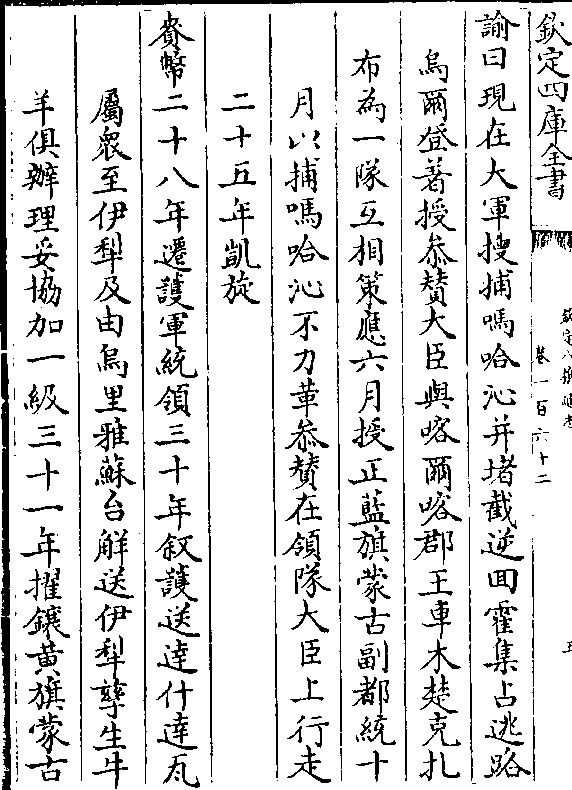 欽定四庫全書
欽定八旗通志
卷一百六十二
五
諭曰現在大軍搜捕嗎哈沁并堵截逆回霍集占逃路
烏爾登著授叅贊大臣與喀爾喀郡王車木楚克扎
布為一隊互相策應六月授正藍旗蒙古副都統十
月以捕嗎哈沁不力革叅贊在領隊大臣上行走
二十五年凱旋
賚幣二十八年遷護軍統領三十年叙護送達什達瓦
屬衆至伊犁及由烏里雅蘇台解送伊犁孳生牛
羊俱辦理妥協加一級三十一年擢鑲黃旗蒙古